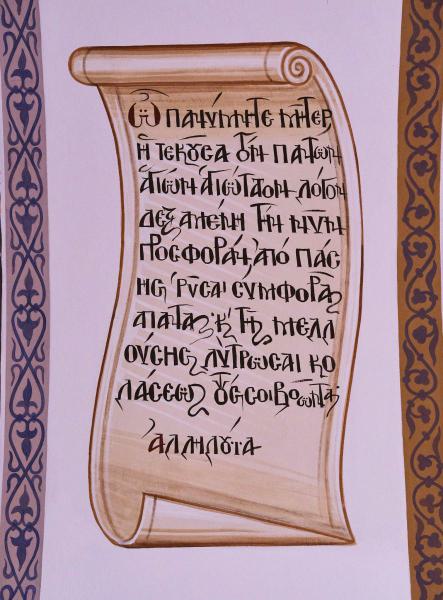 Ὦ πανύμνητε μῆτερ,
ἡ τεκοῦσα τὸν πάντων
ἁγίων ἁγιώτατον Λόγον
δεξαμένη τὴν νῦν
προσφοράν, ἀπό πάσ
ης ῥῦσαι συμφορᾶς
ἅπαντας· κ' τῆς μελλ
ούσης λύτρωσαι κο
λάσεως τοὺς σοι βοῶντας·
ἀλληλούϊα